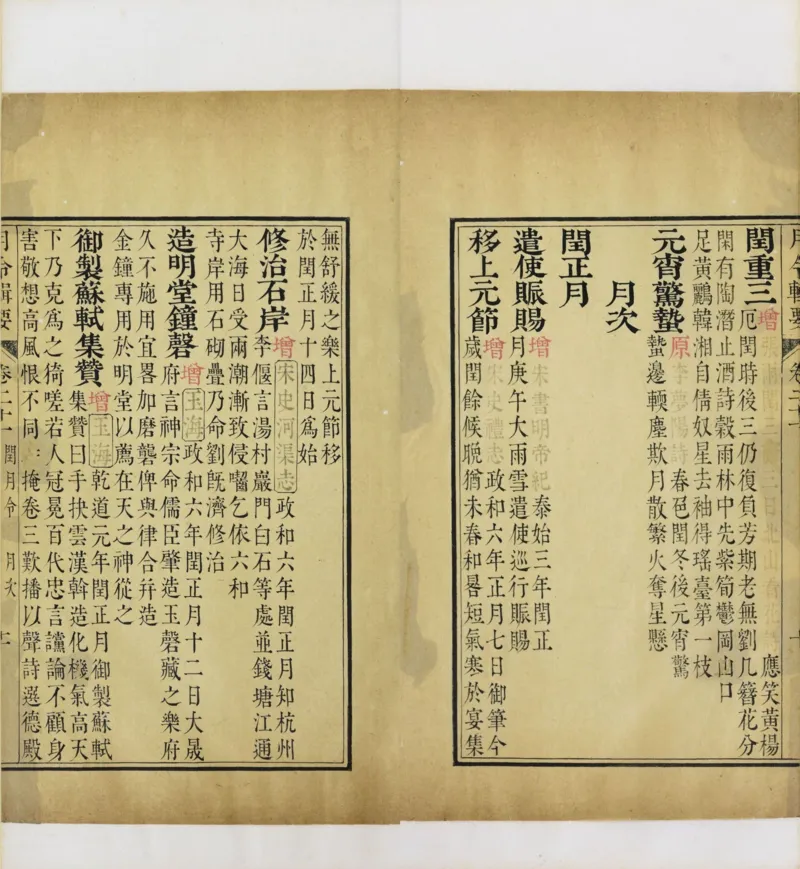 月令輯要
卷二十
閏重三
增
應笑黃楊
厄閏時後三仍復負芳期老無劉几簪花分
閑有陶潛止酒詩穀雨林中先紫筍鬱岡山口
足黃鸝韓湘自倩奴星去袖得瑤臺第一枝
元宵驚蟄
原李夢陽詩春邑閏冬後元宵驚
蟄邊輭塵欺月散繁火奪星懸
月次
閏正月
遣使賑賜
增宋書明帝紀泰始三年閏正
月庚午大雨雪遣使巡行賑賜
移上元節
增宋史禮志政和六年正月七日御筆今
歲閏餘候晚猶未春和晷短氣寒於宴集
無舒緩之樂上元節移
於閏正月十四日爲始
修治石岸
增宋史河渠志政和六年閏正月知杭州
李偃言湯村巖門白石等處並錢塘江通
大海日受兩潮漸致侵嚙乞依六和
寺岸用石砌疊乃命劉旣濟修治
造明堂鐘磬
增玉海政和六年閏正月十二日大晟
府言神宗命儒臣肇造玉磬藏之樂府
久不施用宜畧加磨礱俾與律合幷造
金鐘專用於明堂以薦在天之神從之
御製蘇軾集贊
增玉海乾道元年閏正月御製蘇軾
集贊曰手抉雲漢斡造化機氣高天
下乃克爲之猗嗟若人冠冕百代忠言讜論不顧身
害敬想高風恨不同掩卷三歎播以聲詩選德殿
月令輯要
卷二十一
閏月令
月次